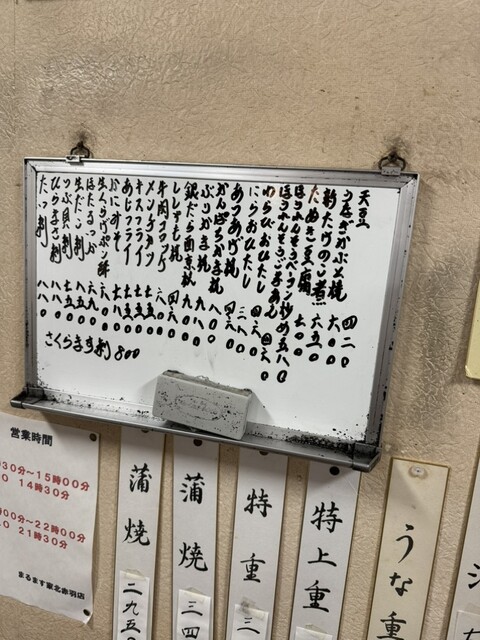 天豆 四二〇
うなぎかぶと焼 六〇〇
新たけのこ煮 六五〇
たぬき豆腐 七〇〇
ほうれんそうベーコン炒め 五八〇
ほうれんそうごまあえ
わらびおひたし 四六〇
にらおひたし 四六〇
あつあげ焼 三八〇
かんぱちかま焼 四六〇
ぶりかま焼 八〇〇
銀だら西京焼 九八〇
ししゃも焼 九〇〇
牛肉コロッケ 四六〇
メンチカツ 六八〇
キスフライ 七五〇
あじフライ 七五〇
かにみそ 七八〇
生くらげポン酢 六〇〇
ほたるいか 六九〇
生だこ刺 七八〇
つぶ貝刺 七五〇
ひらまさ刺 八八〇
たい刺 八八〇
さくらます刺 800
営業時間
30分～15時00分
14時30分
00分～22時00分
21時30分
まるます家北赤羽店
蒲焼 二九五〇
蒲焼 三四
特重 三
特上重
うな重